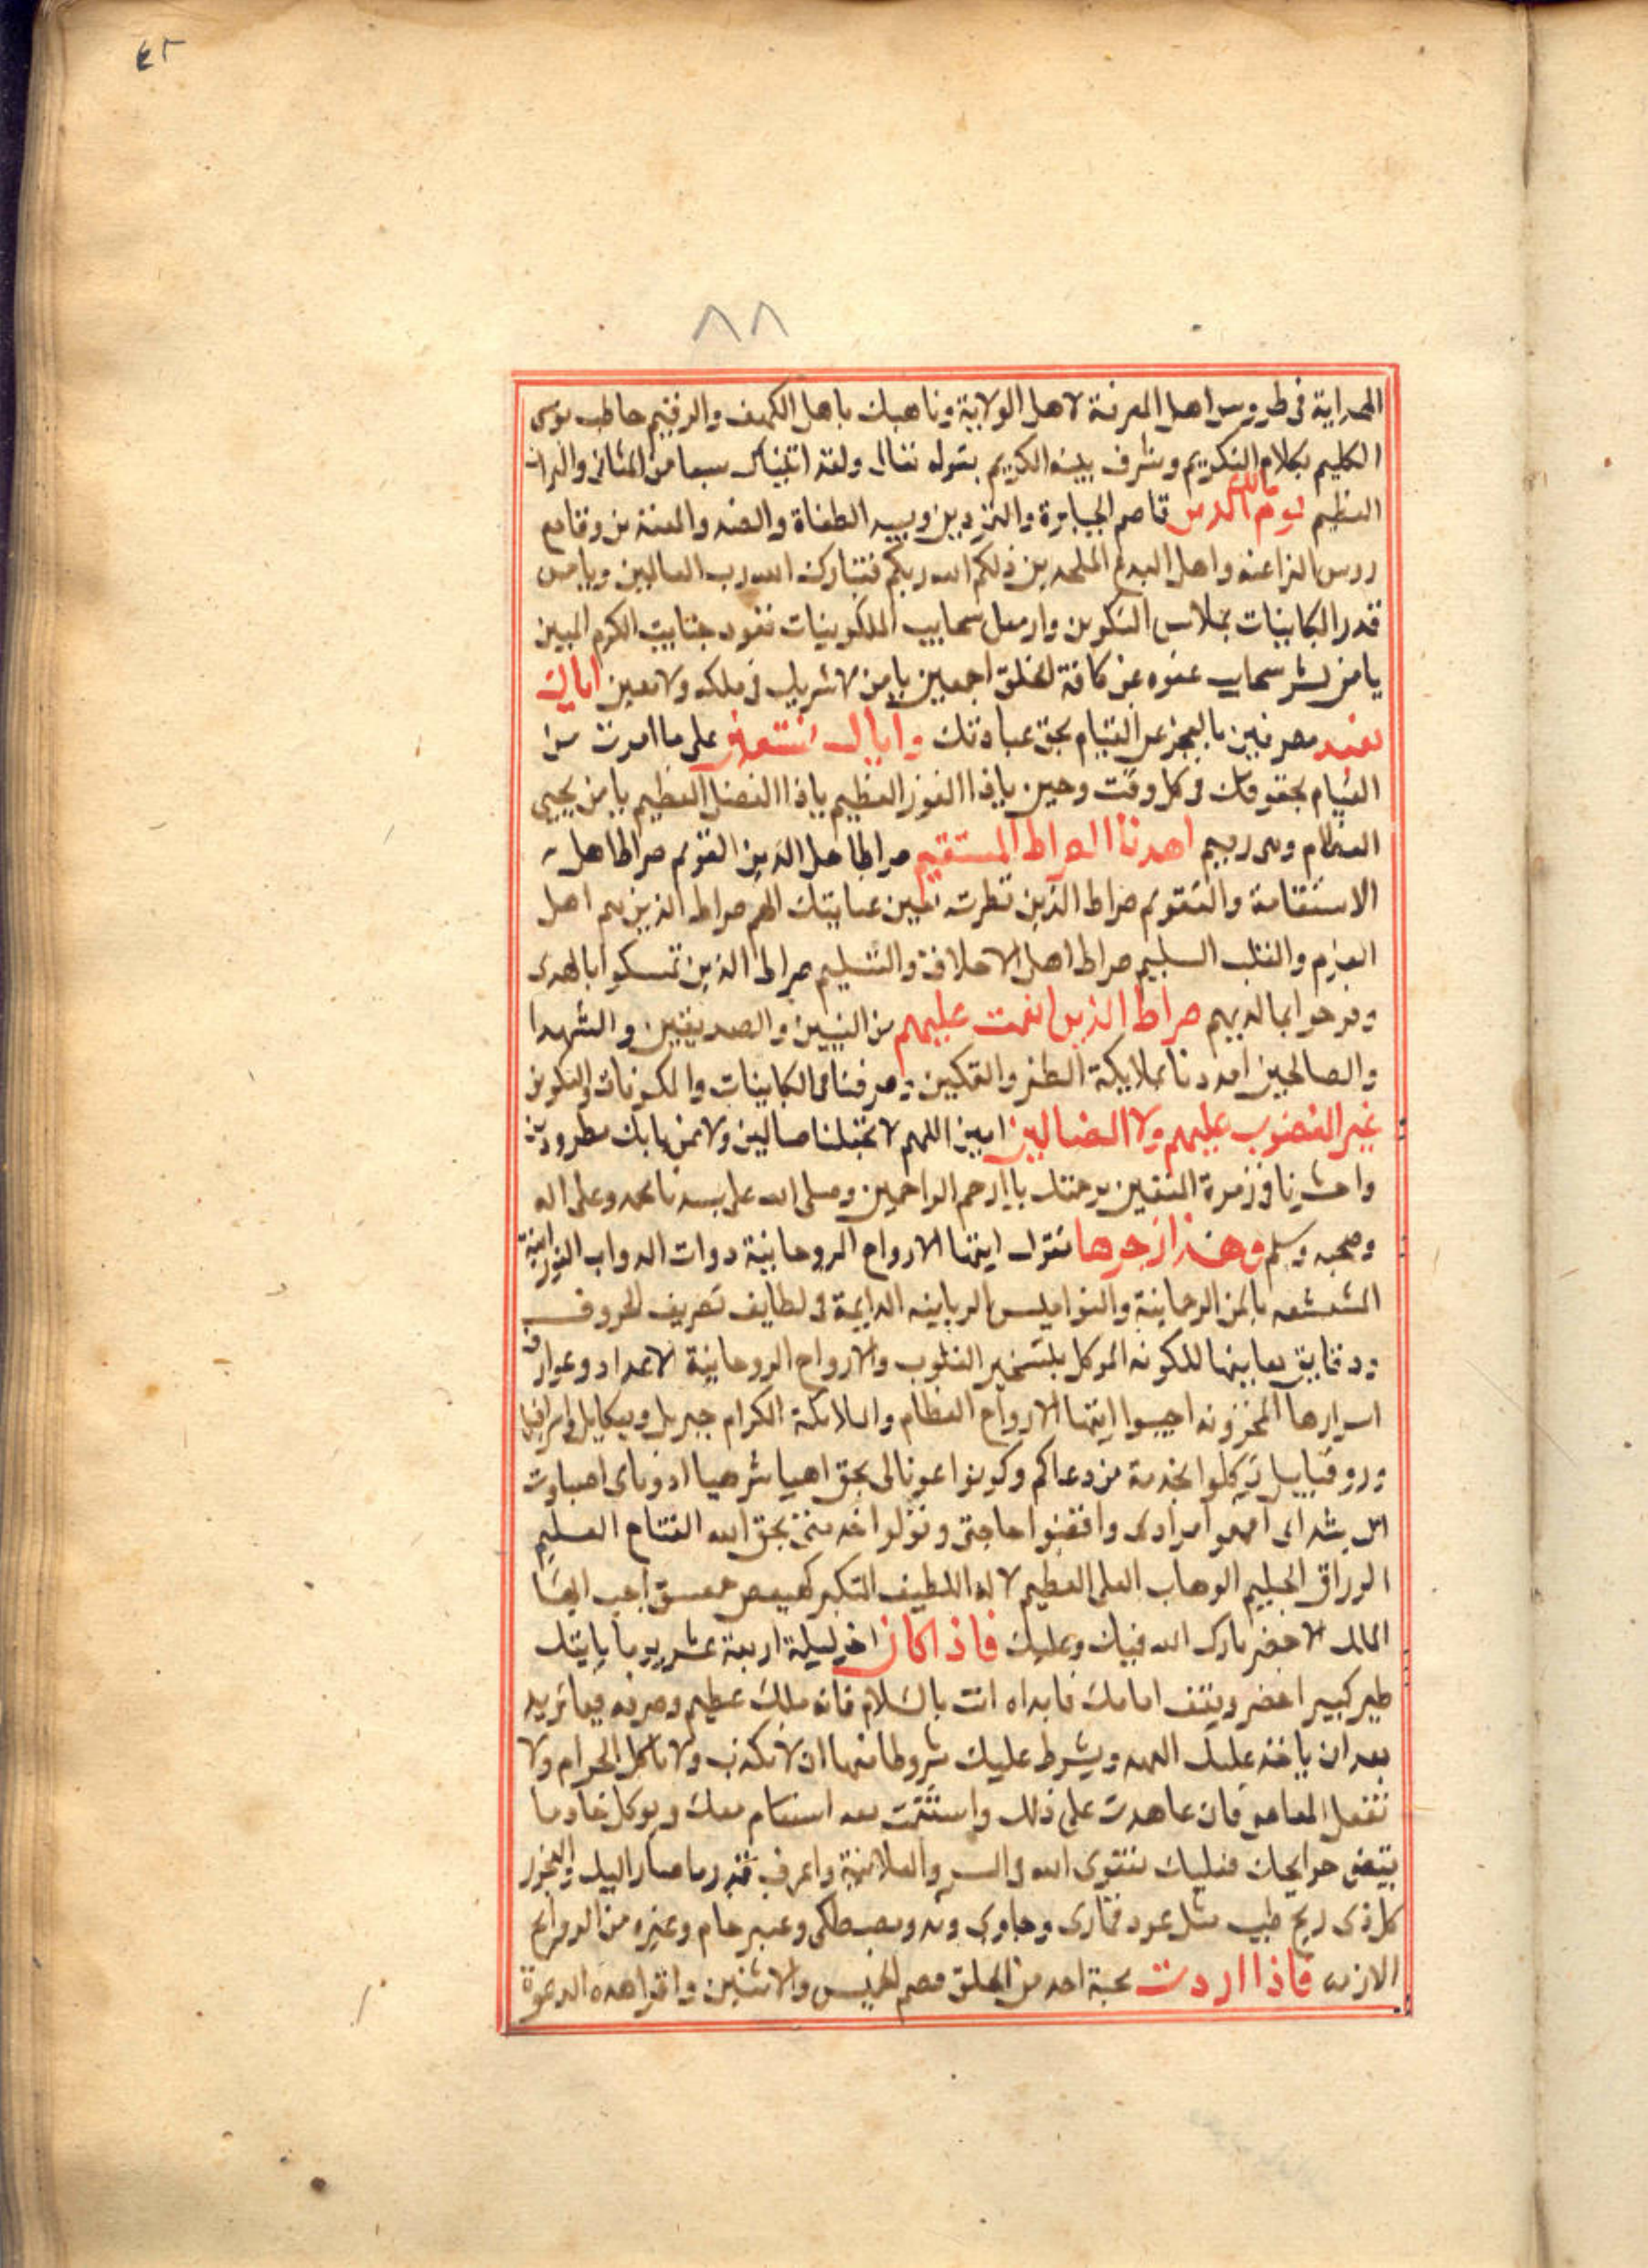 ٤٢
٨٨
الهداية فى طروس اهل المعرفة لاهل الولاية وناهيك باهل الكهف والرقيم خاطب موسى
الكليم بكلام التكريم وشرف نبيه الكريم بقوله تعالى ولقد اتيناك سبعا من المثانى والقران
العظيم مالك يوم الدين قاصم الجبابرة والمتمردين ومبيد الطغاة والمعندين وقامع
روس الفراعنه واهل البدع الملحدين ذلكم الله ربكم فتبارك الله رب العالمين ويا من
قدر الكاينات بملابس التكوين وارسل سحايب الملكوتيات تقود جنايب الكرم المبين
يا من نشر سحاب عفوه عن كافة الخلق اجمعين يا من لا شريك فى ملكه ولا معين اياك
نعبد معرفين بالعجز عن القيام بحق عبادتك واياك نستعين على ما امرت من
القيام بحقوقك فى كل وقت وحين ياذا الفوز العظيم ياذا الفضل العظيم يا من يحيى
العظام وهى رميم اهدنا الصراط المستقيم صراط اهل الدين القويم صراط اهل
الاستقامة والتقويم صراط الذين نظرت بعين عنايتك الهم صراط الذين هم اهل
العزم والقلب السليم صراط اهل الاخلافة والتسليم صراط الذين تمسكوا بالهدى
وفرحوا بما لديهم صراط الذين انعمت عليهم من النبيين والصديقين والشهدا
والصالحين امددنا بملايكة الظفر والتمكين وصرفنا فى الكاينات والمكونات والتكوين
غير المغضوب عليهم ولا الضالين امين اللهم لا تجعلنا ضالين ولا عن بابك مطرودين
واحشرنا فى زمرة المتقين برحمتك يا ارحم الراحمين وصلى الله على سيدنا محمد وعلى اله
وصحبه وسلم وهذا زجرها تقول ايتها الارواح الروحانية ذوات الذواب النورانية
المشعشعه بالمن الرحمانية والنواميس الربانيه الدايمة فى لطايف تصريف الحروف
ودقايق معانيها المكونه الموكل بتسخير القلوب والارواح الروحانية الاعداد وعوارف
اسرارها المخزونه اجيبوا ايتها الارواح العظام والملايكة الكرام جبريل وميكايل واسرافيل
وروقياييل توكلوا بخدمة من دعاكم وكونوا عونا لى بحق اهيا شرهيا ادوناى اصباوت
ال شداى افهموا مرادى واقضوا حاجتى وتولوا خدمتى بحق الله الفتاح العليم
الرزاق الحليم الوهاب العلى العظيم لاله اللطيف الكبير كهيعص حمعسق اجب ايها
الملك الاخضر بارك الله فيك وعليك فاذا كان اخر ليلة اربعة عشر يوما ياتيك
طير كبير اخضر ويقف امامك فابداه انت بالسلام فانه ملك عظيم وصرفه فيما تريد
بعد ان ياخذ عليك العهد ويشرط عليك شروطا منها ان لا تكذب ولا تاكل الحرام ولا
تفعل المعاصى فان عاهدت على ذلك واستقمت معه استقام معك ويوكل خادما
بقضى حوايجك فعليك بتقوى الله فى السر والعلانية واعرف قدر ما صار اليك والبخور
كل ذى ريح طيب مثل عود قمارى وجاوى وند ومصطكى وعنبر خام وغيره من الروايح
فاذا اردت محبة احد من الخلق فصم الخميس والاثنين واقرا هذه الدعوة